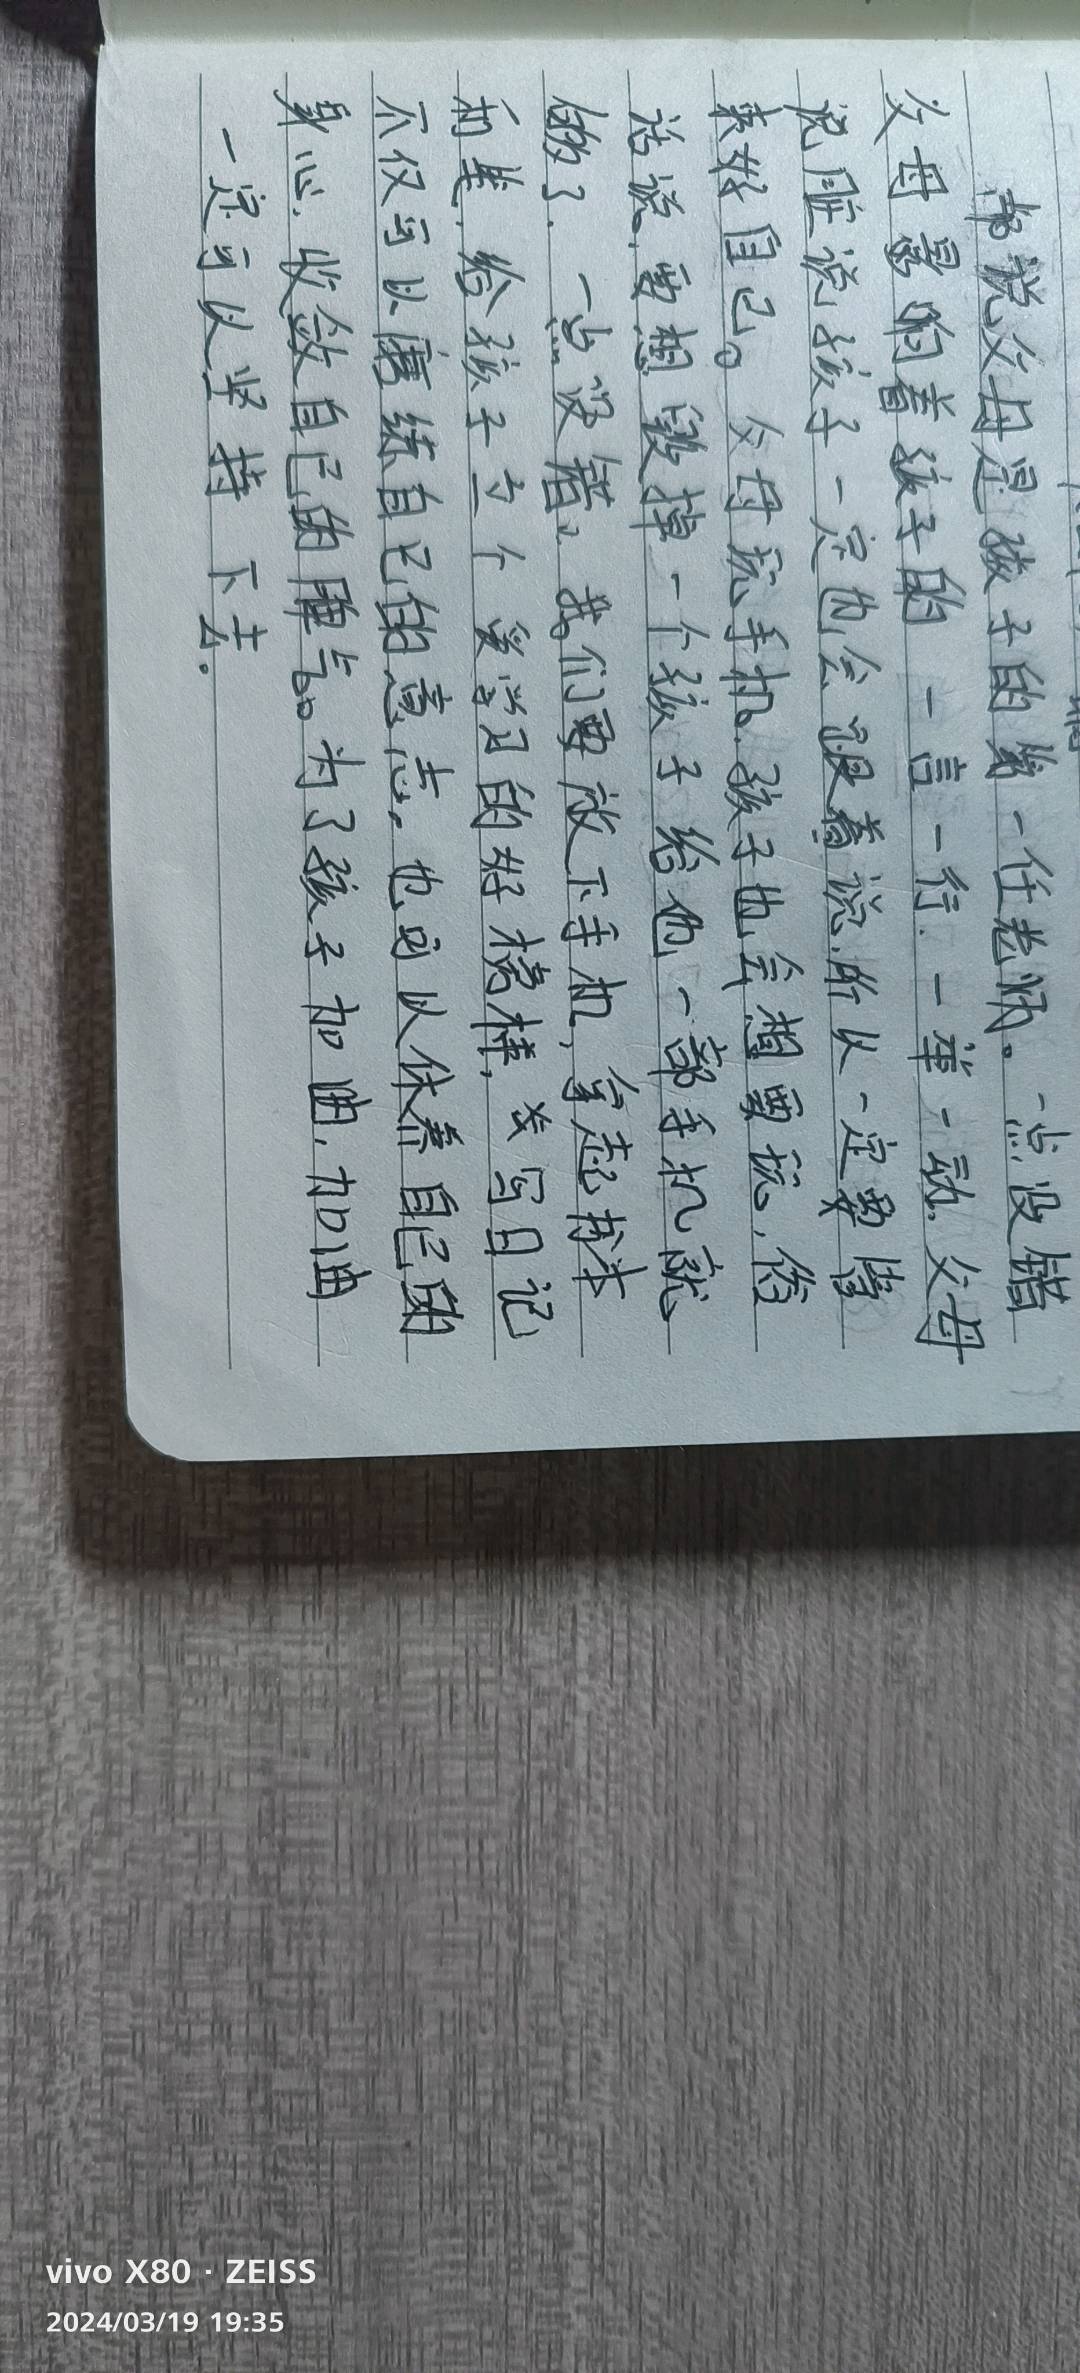 都说父母是孩子的第一任老师。一点没错
父母影响着孩子的一言一行.一举一动.父母
说脏说孩子一定也会跟着说.所以一定要管
束好自己。父母玩手机.孩子也会想要玩.俗
话说.要想毁掉一个孩子给他一部手机就
够了.一点没错。我们要放下手机,拿起书本
和笔.给孩子立个爱学习的好榜样,
写日记
不仅可以磨练自己的意志.也可以休养自己的
身心.收敛自己的脾气。为了孩子加油.加油
一定可以坚持下去.
vivo X80 · ZEISS
2024/03/19 19:35